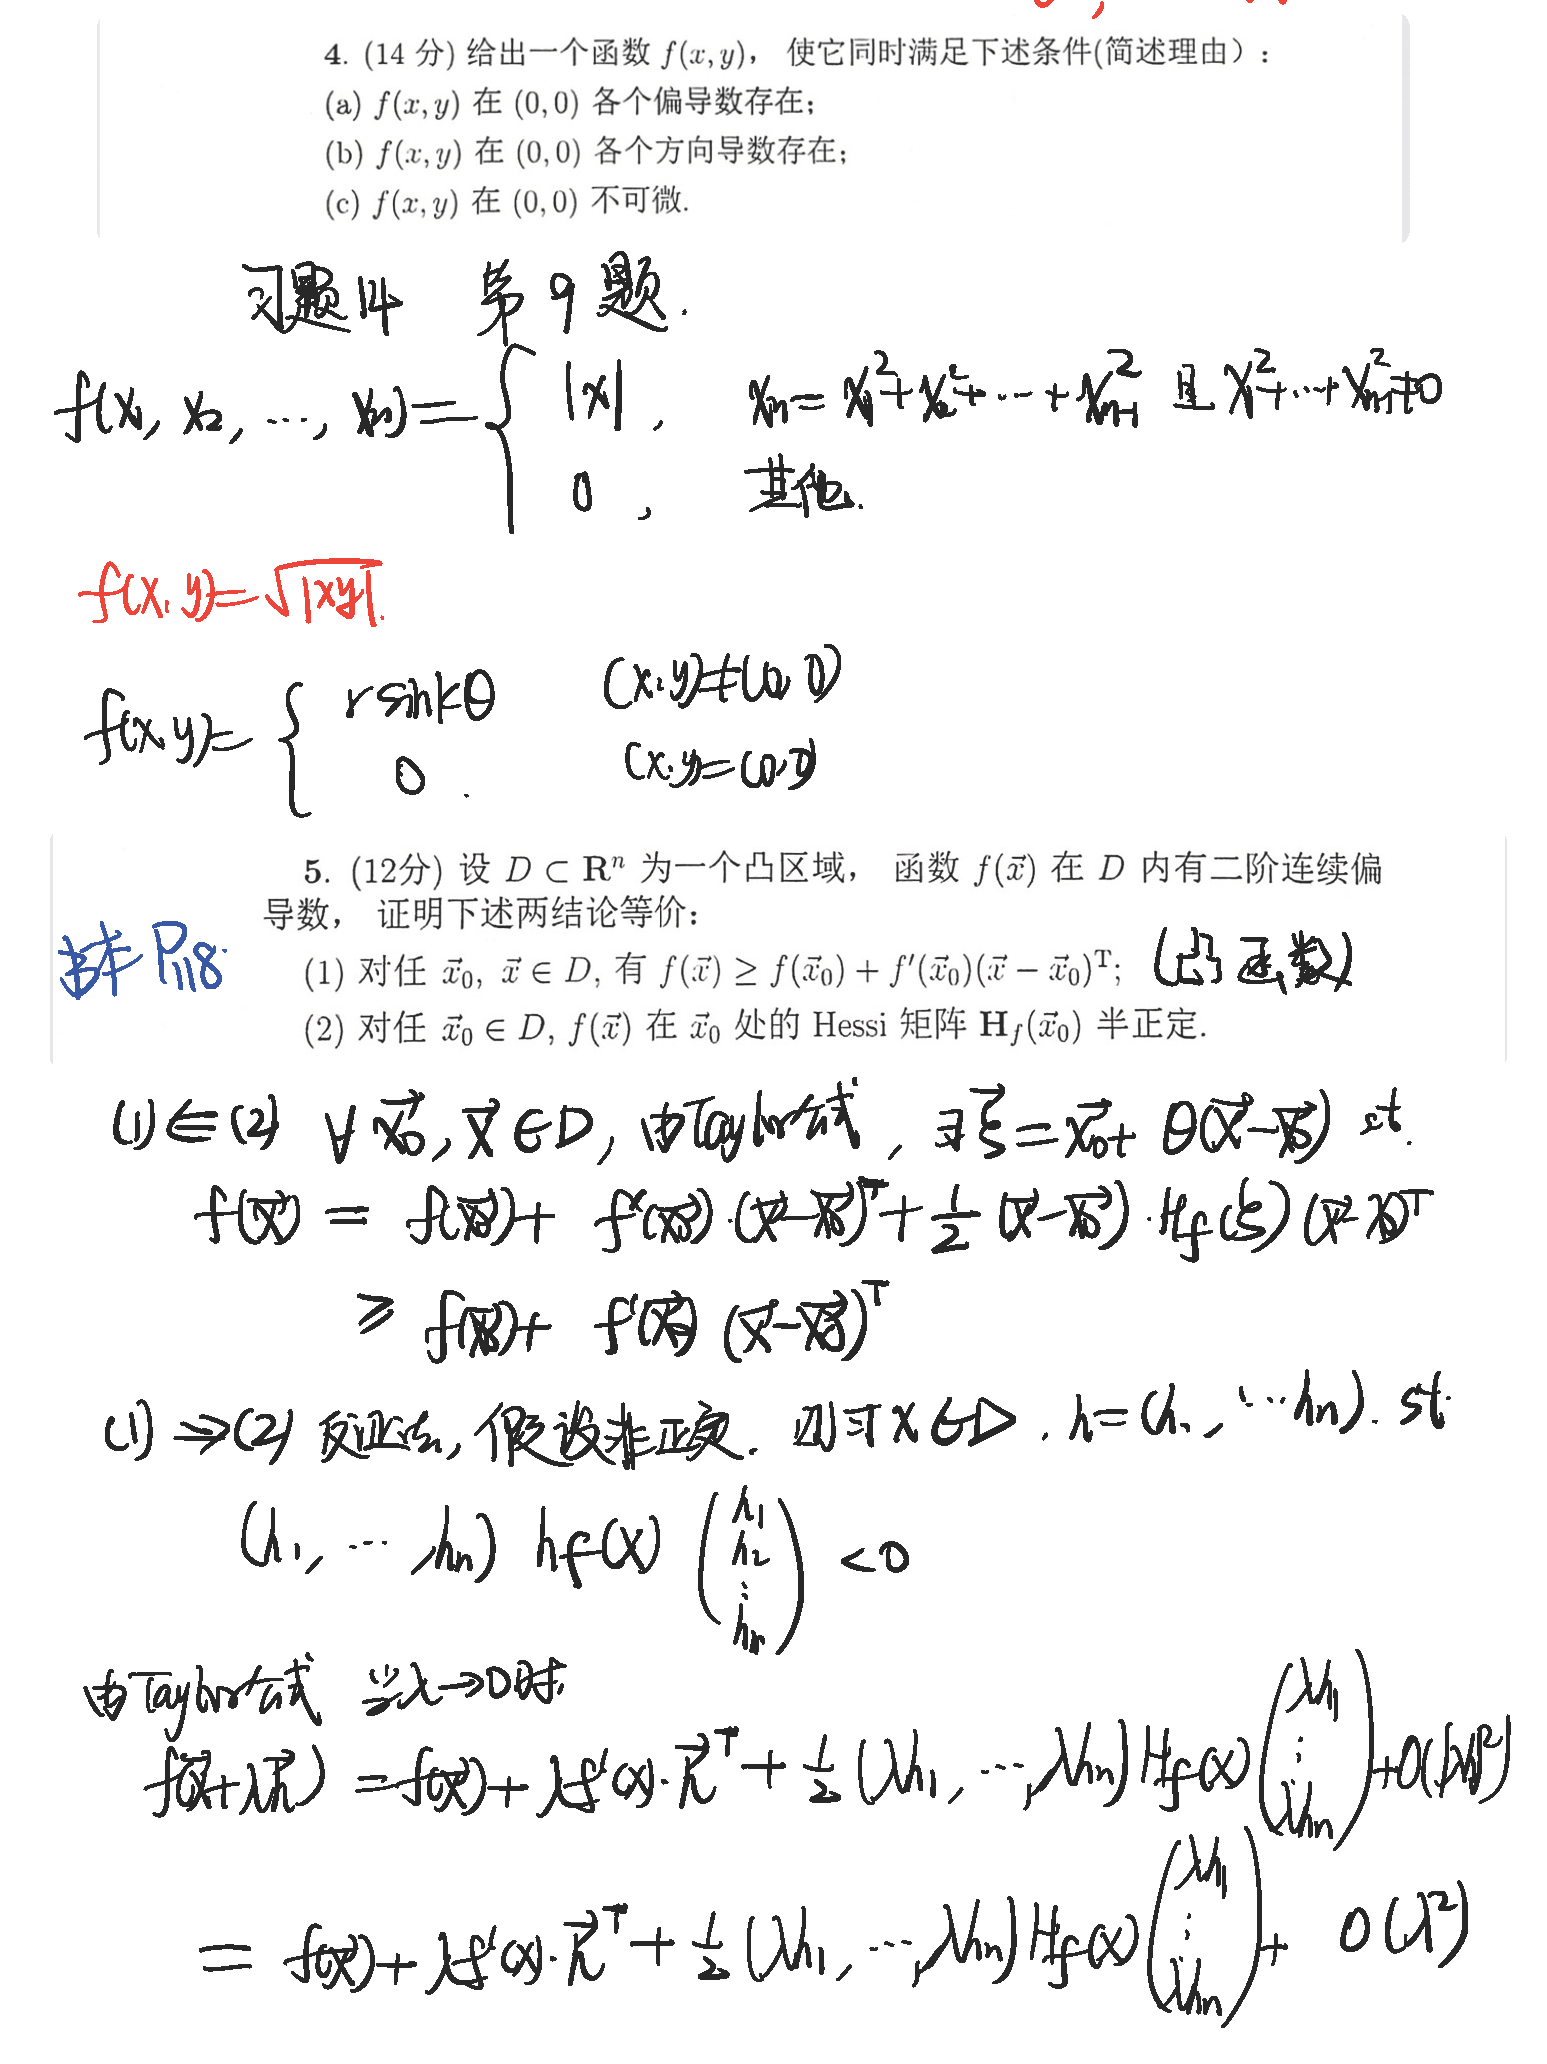 4. (14 分) 给出一个函数 f(x,y)， 使它同时满足下述条件(简述理由）:
(a) f(x,y) 在 (0,0) 各个偏导数存在;
(b) f(x,y) 在 (0,0) 各个方向导数存在;
(c) f(x,y) 在 (0,0) 不可微.
习题14 第9题.
f(x₁, x₂, …, xₙ) = { |x| , xₙ = x₁² + x₂² + … + xₙ₋₁² 且 x₁² + … + xₙ₋₁² ≠ 0
0 , 其他.
f(x,y) = √|xy|.
f(x,y) = { r sin kθ (x,y) ≠ (0,0)
0 . (x,y) = (0,0)
5. (12分) 设 D ⊂ Rⁿ 为一个凸区域， 函数 f(x⃗) 在 D 内有二阶连续偏
导数， 证明下述两结论等价:
书本 P₁₁₈.
(1) 对任 x⃗₀, x⃗ ∈ D, 有 f(x⃗) ≥ f(x⃗₀) + f′(x⃗₀)(x⃗ − x⃗₀)ᵀ; (凸函数)
(2) 对任 x⃗₀ ∈ D, f(x⃗) 在 x⃗₀ 处的 Hessi 矩阵 H_f(x⃗₀) 半正定.
(1) ⇐ (2) ∀ x⃗₀, x⃗ ∈ D, 由Taylor公式, ∃ ξ⃗ = x⃗₀ + θ(x⃗ − x⃗₀) st.
f(x⃗) = f(x⃗₀) + f′(x⃗₀)·(x⃗ − x⃗₀)ᵀ + ½ (x⃗ − x⃗₀)·H_f(ξ)(x⃗ − x₀)ᵀ
≥ f(x⃗₀) + f′(x⃗₀) (x⃗ − x⃗₀)ᵀ
(1) ⇒ (2) 反证法, 假设非正定. 则∃ x ∈ D, h = (h₁, … hₙ). st.
(h₁, … , hₙ) h_f(x) (h₁ h₂ ⋮ hₙ) < 0
由Taylor公式 当λ→0时,
f(x⃗ + λh⃗) = f(x⃗) + λf′(x)·h⃗ᵀ + ½ (λh₁, …, λhₙ) H_f(x) (λh₁ ⋮ λhₙ) + o(|λh|²)
= f(x⃗) + λf′(x)·h⃗ᵀ + ½ (λh₁, …, λhₙ) H_f(x) (λh₁ ⋮ λhₙ) + o(λ²)